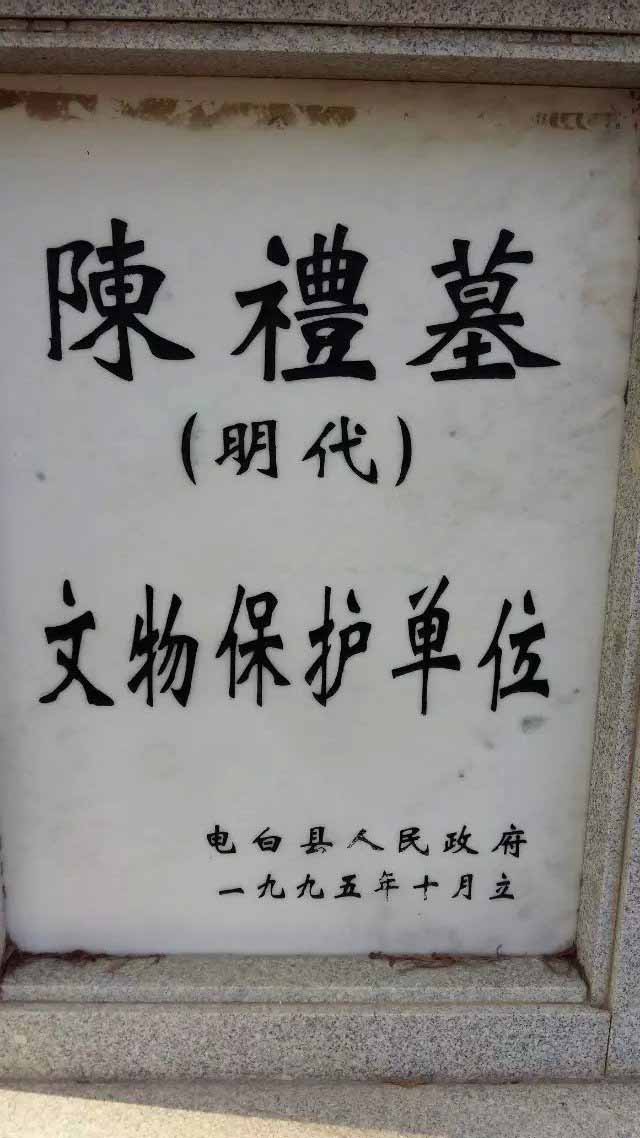 陳禮墓
(明代)
文物保护单位
电白县人民政府
一九九五年十月立